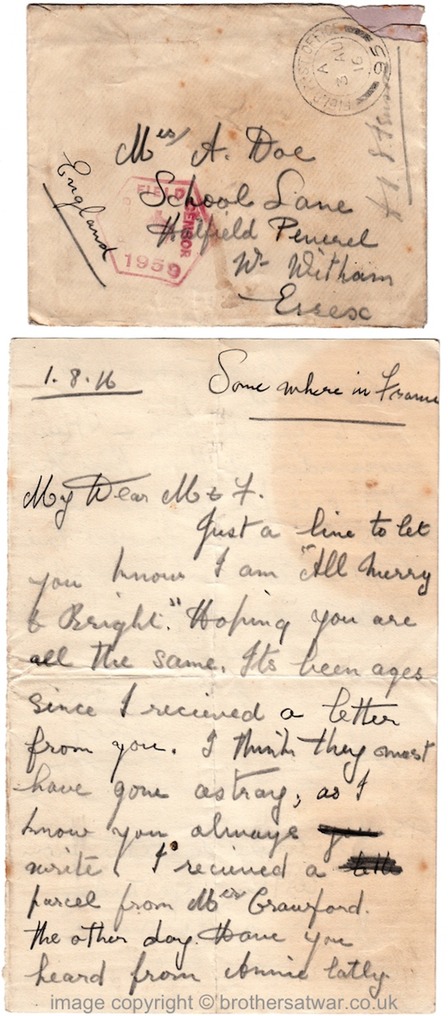 FIELD POST OFFICE
A
3 AU
16
95
Mrs A. Doe
School Lane
Hatfield Peverel
Nr Witham
Essex
England
FIELD CENSOR
1959
1.8.16
Some where in France
My Dear M & F.
Just a line to let
you know I am "All Merry
& Bright." Hoping you are
all the same. Its been ages
since I recieved a letter
from you. I think they must
have gone astray, as I
know you always
write. I recieved a
parcel from Mrs Crawford.
the other day. Have you
heard from Annie latly.
image copyright © brothersatwar.co.uk